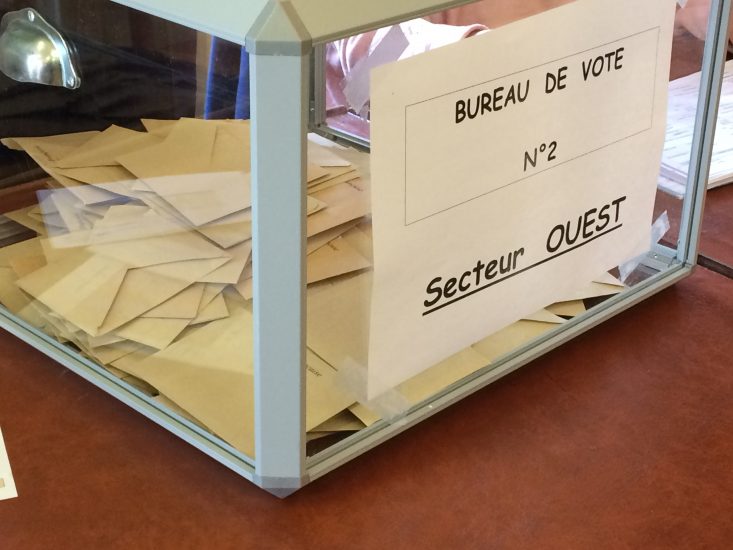 BUREAU DE VOTE
N°2
Secteur OUEST